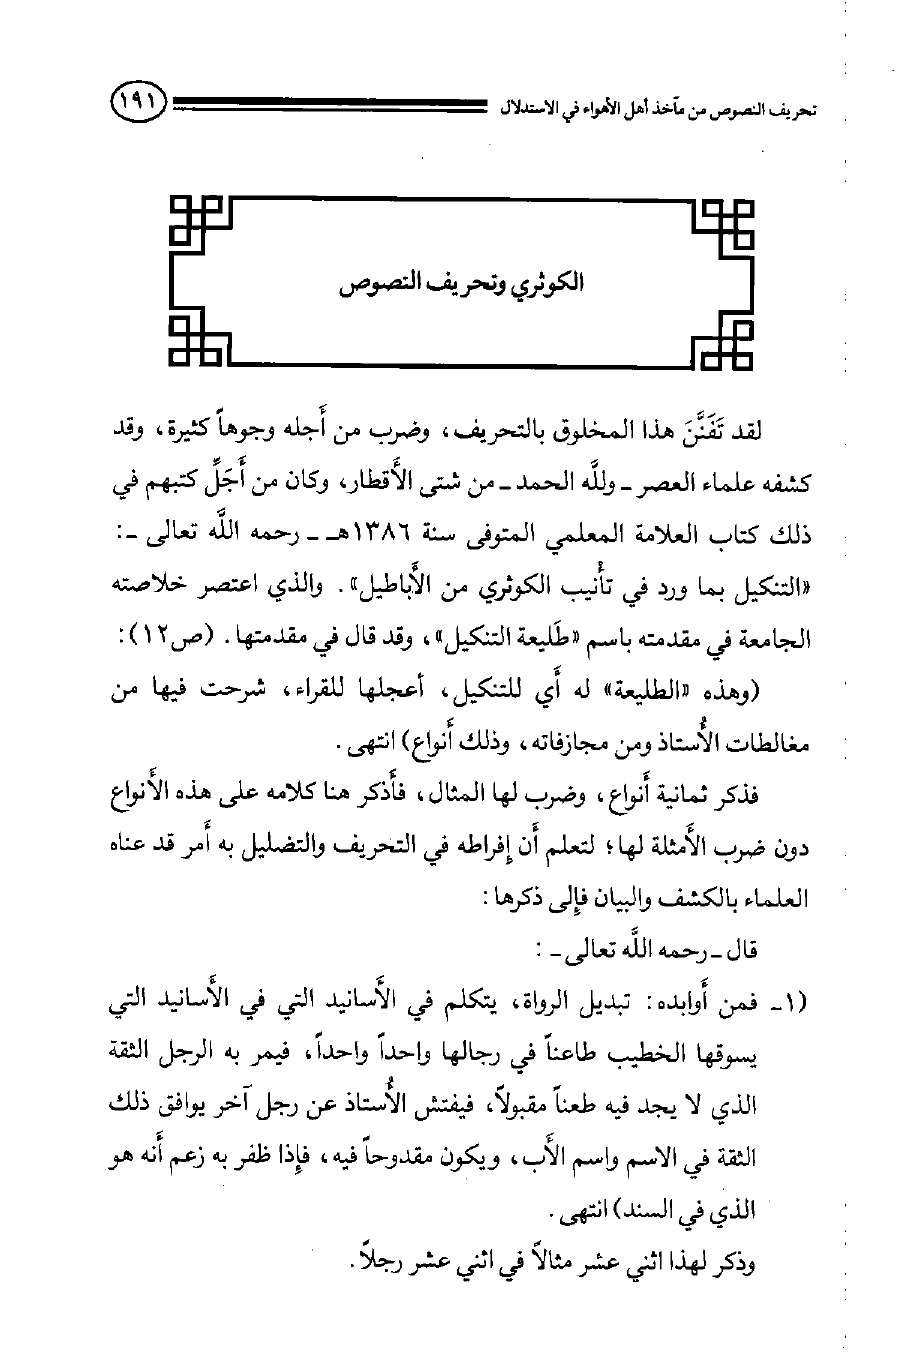 تحريف النصوص من مآخذ أهل الأهواء في الاستدلال ١٩١
الكوثري وتحريف النصوص
لقد تَفَنَّنَ هذا المخلوق بالتحريف، وضرب من أجله وجوهاً كثيرة، وقد
كشفه علماء العصر ـ وللَّه الحمد ـ من شتى الأقطار، وكان من أَجَلِّ كتبهم في
ذلك كتاب العلامة المعلمي المتوفى سنة ١٣٨٦هـ ـ رحمه اللَّه تعالى ـ:
«التنكيل بما ورد في تأنيب الكوثري من الأباطيل». والذي اعتصر خلاصته
الجامعة في مقدمته باسم «طَليعة التنكيل»، وقد قال في مقدمتها. (ص١٢):
(وهذه «الطليعة» له أي للتنكيل، أعجلها للقراء، شرحت فيها من
مغالطات الأُستاذ ومن مجازفاته، وذلك أنواع) انتهى.
فذكر ثمانية أنواع، وضرب لها المثال، فأذكر هنا كلامه على هذه الأنواع
دون ضرب الأمثلة لها؛ لتعلم أن إفراطه في التحريف والتضليل به أمر قد عناه
العلماء بالكشف والبيان فإلى ذكرها:
قال ـ رحمه اللَّه تعالى ـ:
(١ـ فمن أوابده: تبديل الرواة، يتكلم في الأسانيد التي في الأسانيد التي
يسوقها الخطيب طاعناً في رجالها واحداً واحداً، فيمر به الرجل الثقة
الذي لا يجد فيه طعناً مقبولاً، فيفتش الأُستاذ عن رجل آخر يوافق ذلك
الثقة في الاسم واسم الأب، ويكون مقدوحاً فيه، فإذا ظفر به زعم أنه هو
الذي في السند) انتهى.
وذكر لهذا اثني عشر مثالاً في اثني عشر رجلاً.